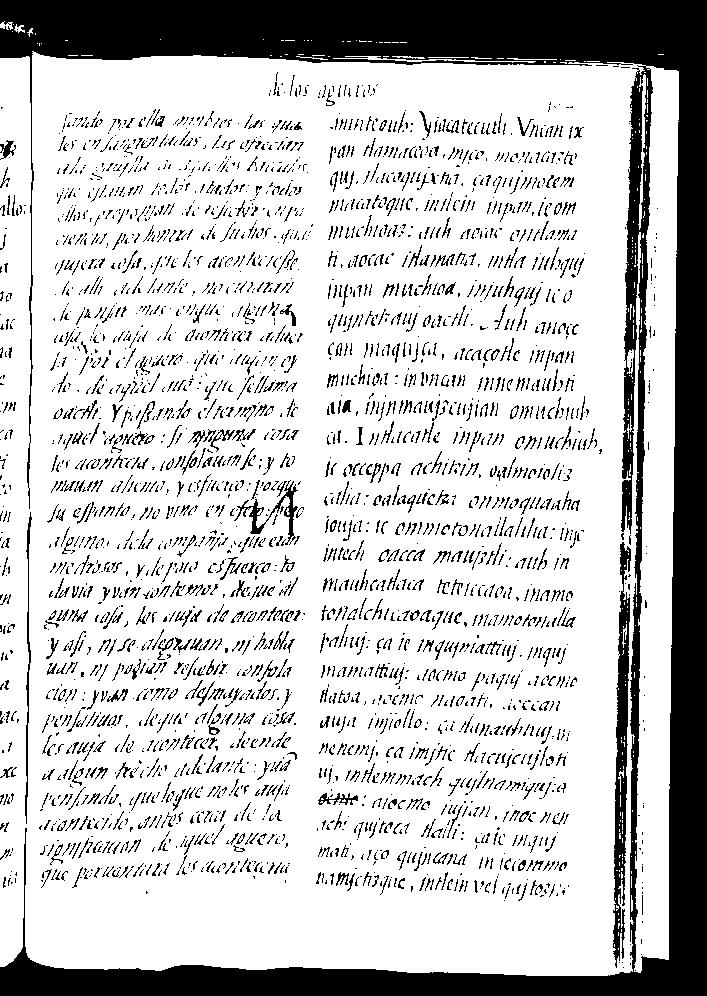 de los agueros
sando por ella nombres: las quales
les ensangrentadas, las ofrecian
a la gauilla de aquellos baculos,
que estauan todos atados: y todos
ellos, proponjan de rescebir en pa
ciencia, por honrra de su dios, qual
qujera cosa, que les aconteciesse.
de alli adelante, no curauan
de pensar mas en que alguna
cosa les auja de acontecer aduer
sa por el aguero, que aujan oy
do, de aquel aue: que se llama
oactli. Y passando el termjno, de
aquel aguero: si njnguna cosa
les acontecia, consolauanse: y to
mauan aliento, y esfuerço: porque
su espanto, no vino en efecto: pero
algunos de la compañja, que eran
medrosos, y de poco esfuerço: to
davia yvan con temor, de que al
guna cosa, les auja de acontecer:
y asi, nj se alegrauan, nj habla
uan, nj podian rescebir consola
cion: yvan como desmayados, y
pensatiuos, de que alguna cosa,
les auja de acontecer, deende
a algun trecho adelante: yuan
pensando, que lo que no les auja
acontecido, antes cerca de la
significacion de aquel aguero,
que perventura les aconteceria
ininteouh: Yiacatecutli. Vncan ix
pan tlamaceoa, mjço, monacazte
quj, tlacoqujxtia, ça qujmotem
macatoque, in tlein inpan, ie om
muchioaz: auh aocac ontlama
ti, aocac itlamatia, intla iuhquj
inpan muchioa, injuhquj ic o
qujntetzauj oactli. Auh anoçe
çan maqujça, acaçotle inpan
muchioa: in vncan innemauhti
aia, injnmaujzcujian omuchiuh
ca. Intlacatle inpan omuchiuh,
ie occeppa achitzin, oalmotoliz
çalia: oalaquetza onmoquaaha
iouja: ic ommotonallalilia: injc
intech oacca maujztli: auh in
mauhcatlaca tetecicaoa, in amo
tonalchicaoaque, in amo tonalla
paltij: ça ie inqujmattiuj, inquj
mamattiuj: aocmo paquj aocmo
tlatoa, aocmo naoati, aoccan
auja injollo: ça tlanauhtiuj in
nenemj, ça imjtic tlacujcujloti
uj, intlemmach qujlnamjquj:a
aocmo iujian, in oc nen
achi qujtoca tlalli: ça ie inquj
mati, aço qujncana in iecommo
namjctizque, in tlein vel qujtoznequj